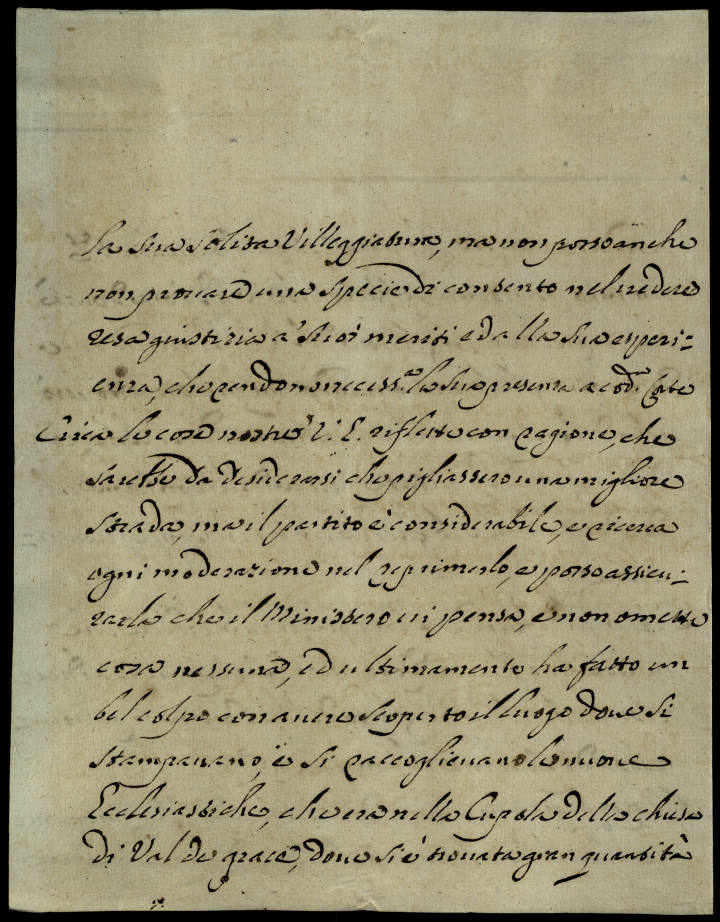 la sua solita Villeggiatura, ma non posso anche
non provare una specie di contento nel vedere
resa giustizia a' suoi meriti ed alla sua esperi=
enza, che rendono necess.ª la sua presenza a cod.ª Corte
Circa le cose nostre V. E. riflette con ragione, che
sarebbe da desiderarsi che pigliassero una migliore
strada, ma il partito è considerabile, e ricerca
ogni moderazione nel reprimerlo, e posso assicu=
rarla che il Ministero ci pensa, e non omette
cosa nessuna, ed ultimamente ha fatto un
bel colpo con avere scoperto il luogo dove si
stampavano, e si raccoglievano le nuove
Ecclesiastiche, che era nella Cupola della chiesa
di Val de grace, dove si è trovata gran quantità